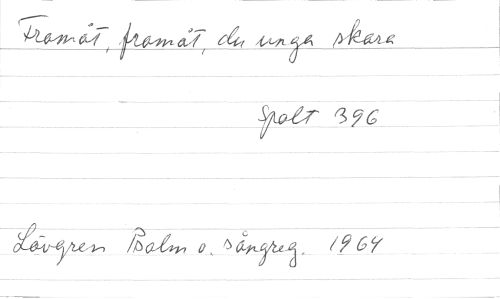 Framåt, framåt, du unga skara
Spalt 396
Lövgren Psalm o. sångreg. 1964